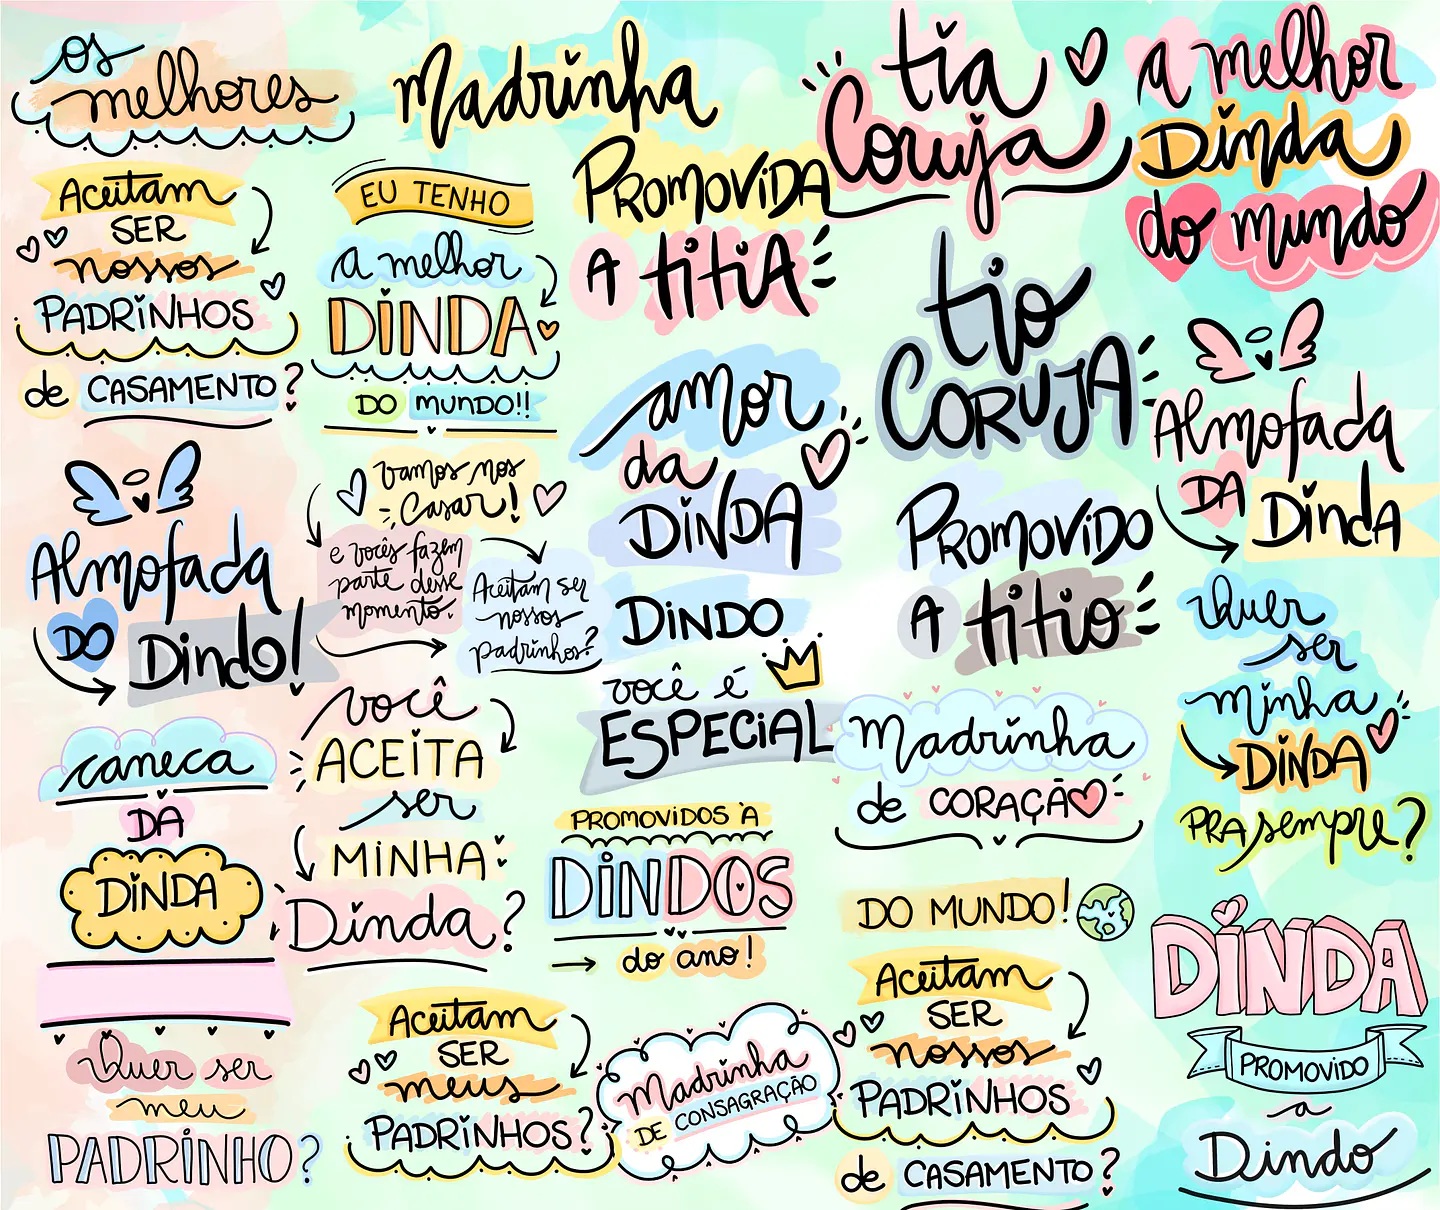 os
melhores
Madrinha
tia
Coruja
a melhor
Dinda
do mundo
Aceitam
SER
nossos
PADRINHOS
de CASAMENTO?
EU TENHO
a melhor
DINDA
DO MUNDO!!
PROMOVIDA
A titiA
tio
CORUJA
amor
da
DINDA
Almofada
DA Dinda
Almofada
DO Dindo!
vamos nos
Casar!
e vocês fazem
parte desse
momento.
Aceitam ser
nossos
padrinhos?
DINDO
você é
ESPECIAL
PROMOVIDO
A titio
Quer
ser
minha
DINDA
PRA sempre?
caneca
DA
DINDA
você
ACEITA
ser
MINHA
Dinda?
Madrinha
de CORAÇÃO
PROMOVIDOS À
DINDOS
do ano!
DO MUNDO!
DINDA
PROMOVIDO
a
Dindo
Quer ser
meu
PADRINHO?
Aceitam
SER
meus
PADRINHOS?
Madrinha
DE CONSAGRAÇÃO
Aceitam
SER
nossos
PADRINHOS
de CASAMENTO?